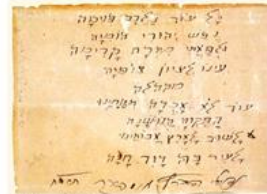 כל עוד בלבב פנימה
נפש יהודי הומיה
ולפאתי מזרח קדימה
עינו לציון צופיה
מקהלה
עוד לא אבדה תקותנו
התקוה הנושנה
לשוב לארץ אבותינו
לעיר בה דוד חנה
נפתלי הרץ אימבר